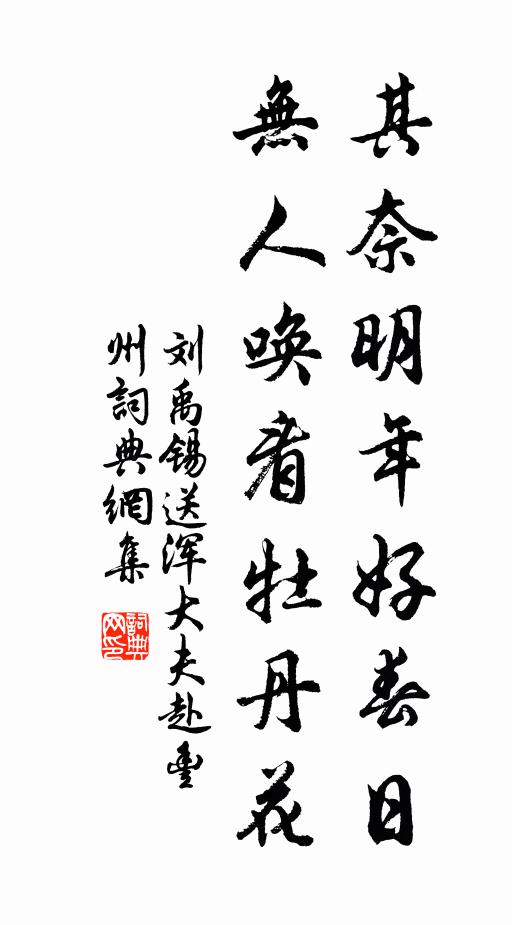 其奈明年好春日
無人唤看牡丹花
刘禹锡送浑大夫赴豐
州詞典網集
詞典
网印